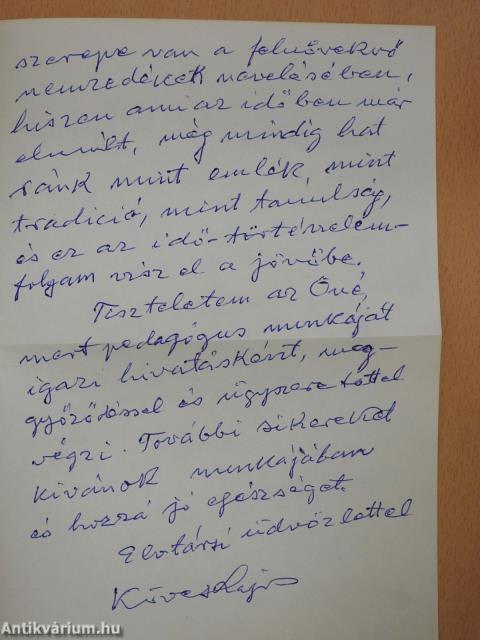 szerepe van a felnövekvő
nemzedékek nevelésében,
hiszen ami az időben már
elmúlt, még mindig hat
ránk mint emlék, mint
tradició, mint tanulság,
és ez az idő-történelem-
folgam visz el a jövőbe.
Tiszteletem az Öné,
mert pedagógus munkáját
igazi hivatásként, meg-
győződéssel és ügyszeretettel
végzi. További sikereket
kívánok munkájában
és hozzá jó egészséget.
Elvtársi üdvözlettel
Köves Lajos
Antikvárium.hu